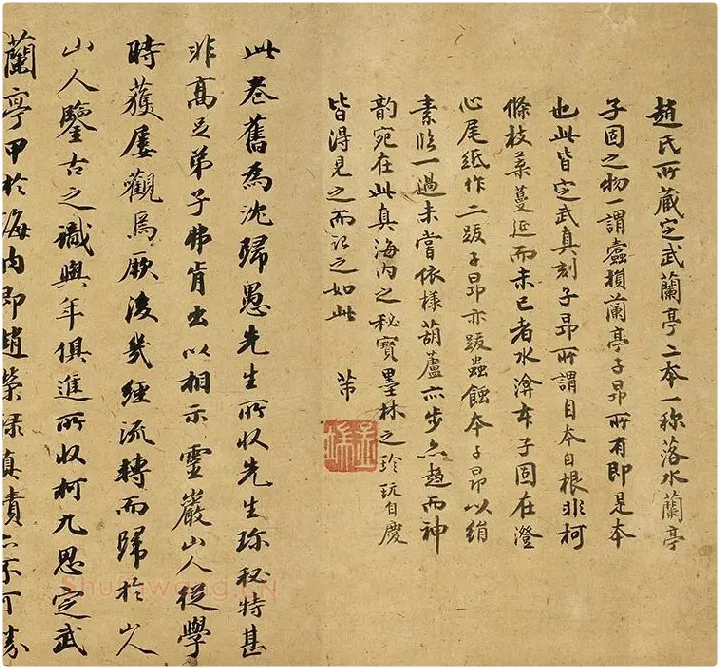 趙氏所藏定武蘭亭二本一称落水蘭亭
子固之物一謂蠹損蘭亭子昂所有即是本
也此皆定武真刻子昂所謂自本自根非柯
條枝葉蔓延而未已者水渰本子固在澄
心尾紙作二跋子昂亦跋蟲蝕本子昂以絹
素臨一過未嘗依樣葫蘆亦步亦趨而神
韵宛在此真海内之秘寶墨林之珍玩自慶
皆得見之而記之如此
芾
此卷舊為沈歸愚先生所収先生珎秘特甚
非髙足弟子弗肯出以相示靈巖山人從學
時獲屡觀焉厥後幾經流轉而歸於山人
山人鑒古之識與年俱進所収柯九思定武
蘭亭甲於海内即趙榮禄真蹟亦不可
Shufawang.cn